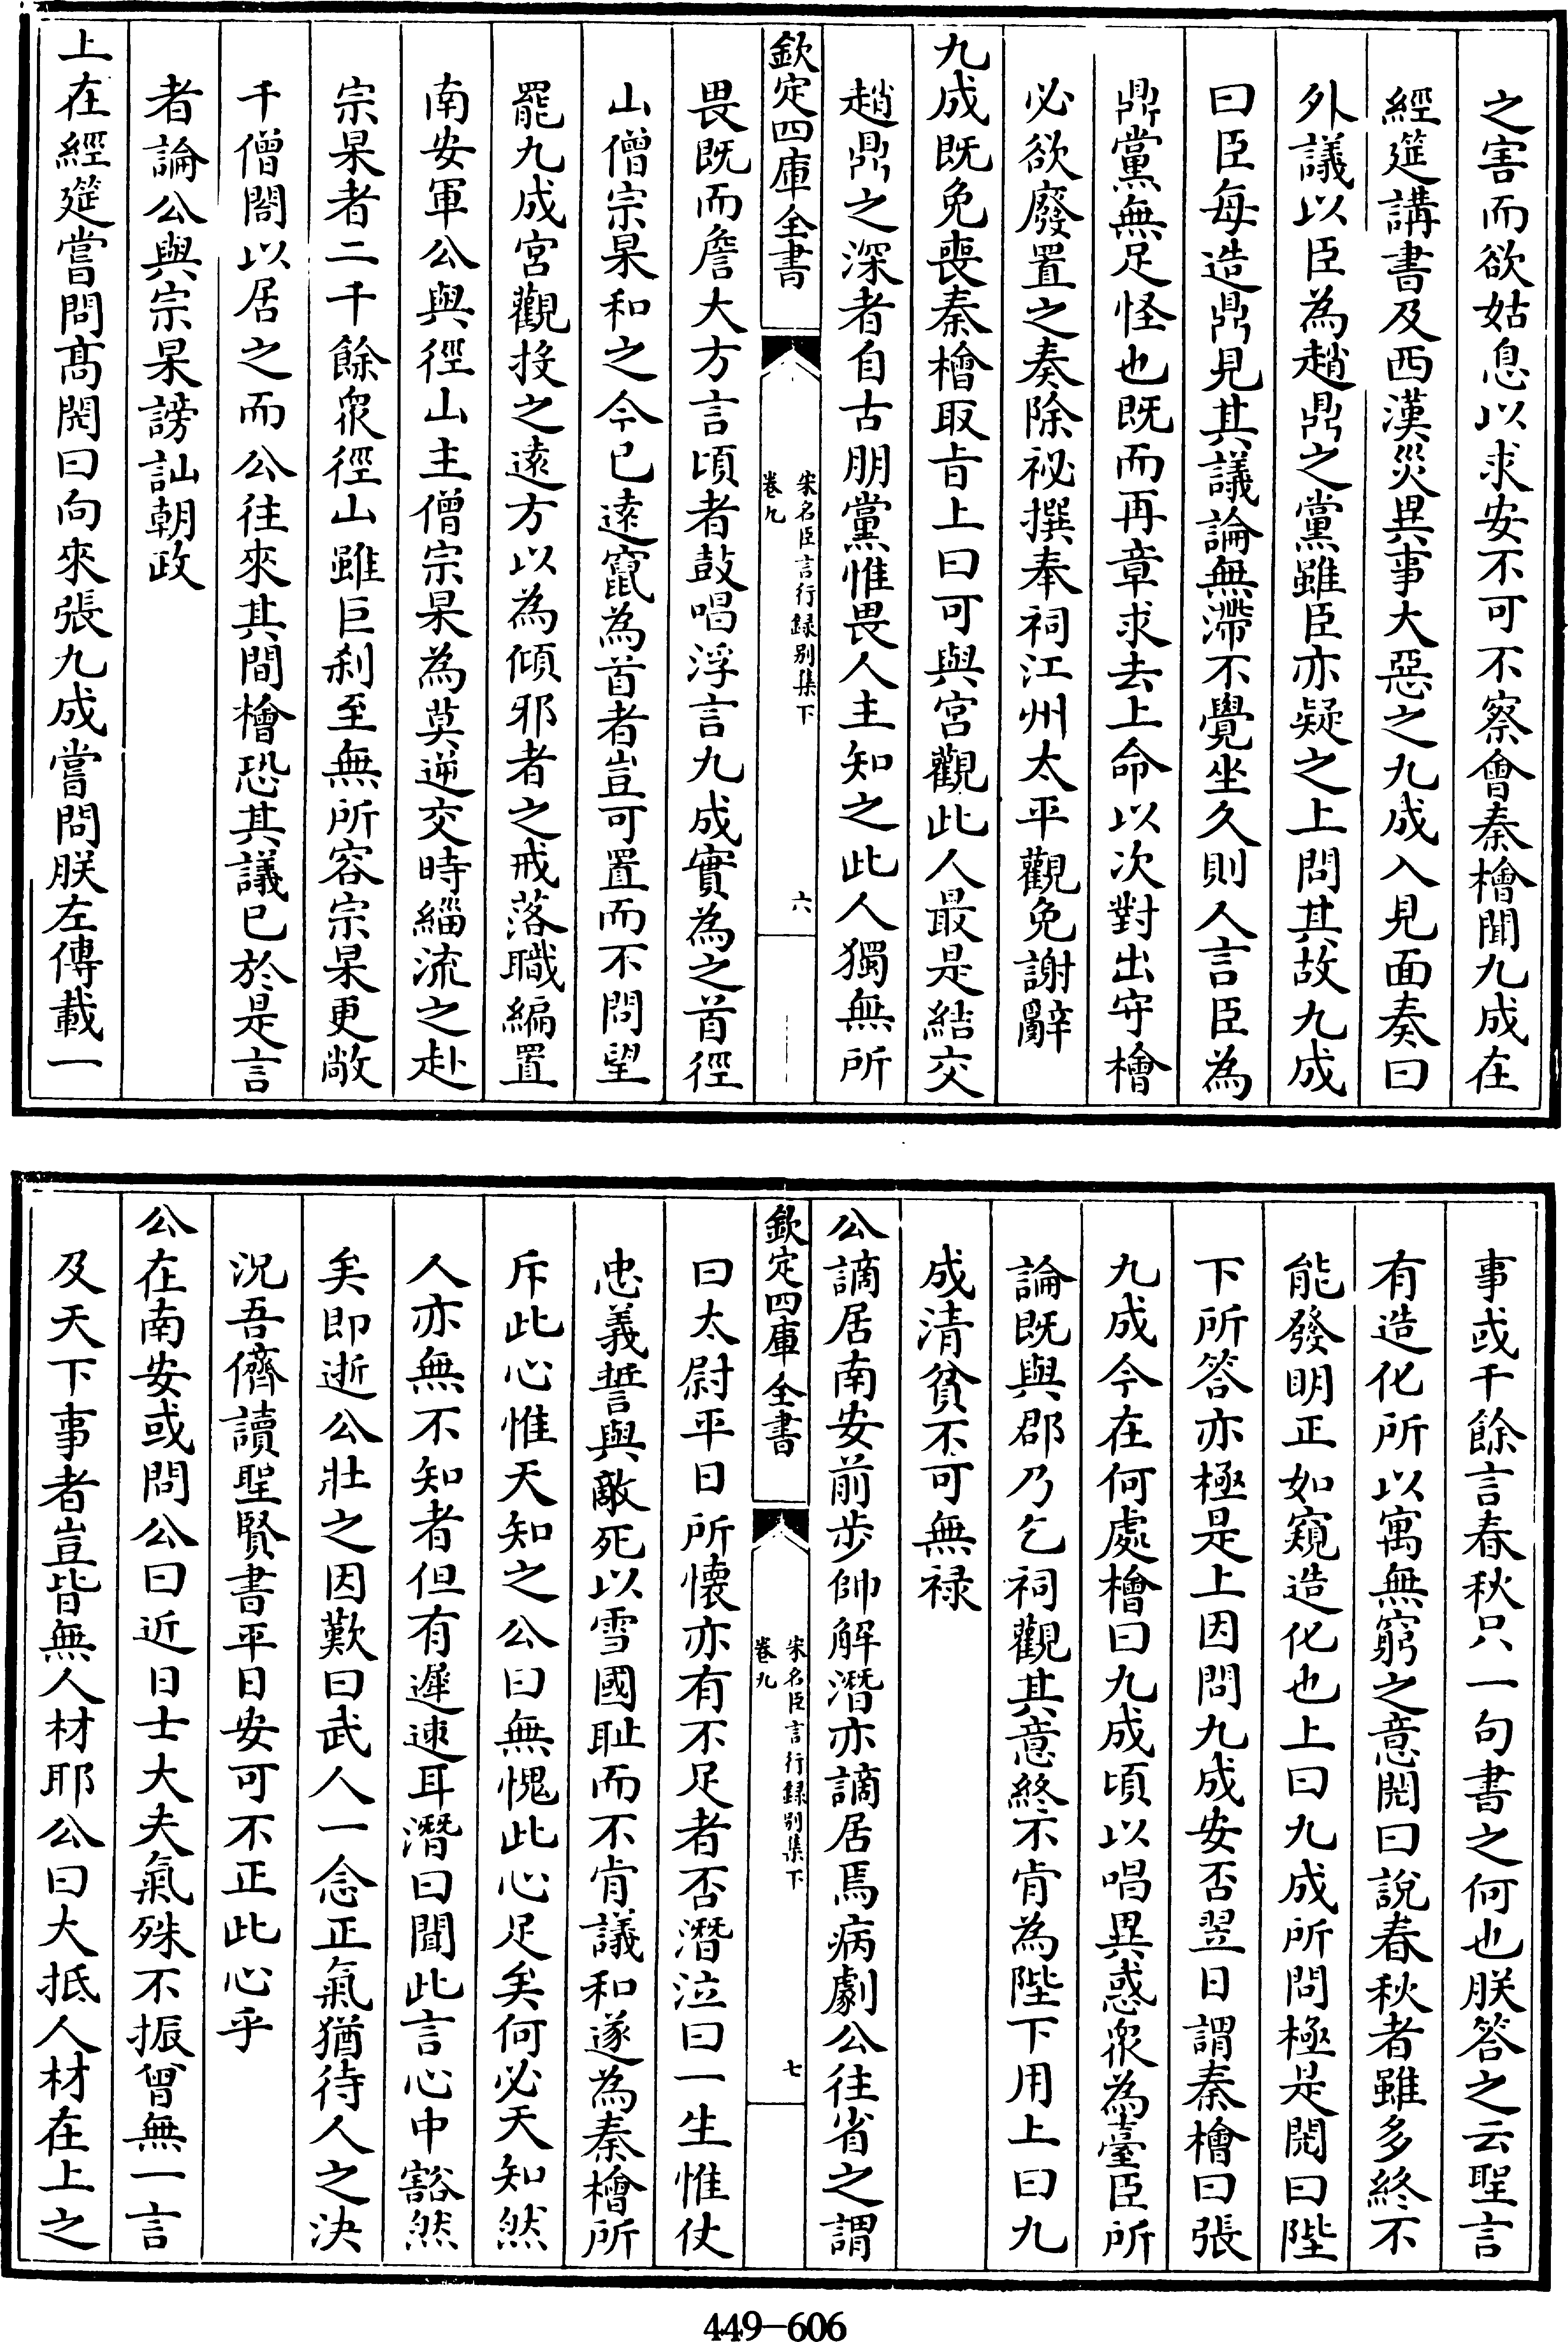 之害而欲姑息以求安不可不察會秦檜聞九成在
經筵講書及西漢災異事大惡之九成入見面奏曰
外議以臣為趙鼎之黨雖臣亦疑之上問其故九成
曰臣每造鼎見其議論無滯不覺坐久則人言臣為
鼎黨無足怪也既而再章求去上命以次對出守檜
必欲廢置之奏除祕撰奉祠江州太平觀免謝辭
九成既免喪秦檜取旨上曰可與宮觀此人最是結交
趙鼎之深者自古朋黨惟畏人主知之此人獨無所
欽定四庫全書
宋名臣言行録别集下
卷九
六
畏既而詹大方言頃者鼓唱浮言九成實為之首徑
山僧宗杲和之今已遠竄為首者豈可置而不問望
罷九成宮觀投之遠方以為傾邪者之戒落職編置
南安軍公與徑山主僧宗杲為莫逆交時緇流之赴
宗杲者二千餘衆徑山雖巨刹至無所容宗杲更敞
千僧閣以居之而公往來其間檜恐其議已於是言
者論公與宗杲謗訕朝政
上在經筵嘗問髙閌曰向來張九成嘗問朕左傳載一
事或千餘言春秋只一句書之何也朕答之云聖言
有造化所以寓無窮之意閌曰說春秋者雖多終不
能發明正如窺造化也上曰九成所問極是閌曰陛
下所答亦極是上因問九成安否翌日謂秦檜曰張
九成今在何處檜曰九成頃以唱異惑衆為臺臣所
論既與郡乃乞祠觀其意終不肯為陛下用上曰九
成清貧不可無禄
公謫居南安前步帥解潛亦謫居焉病劇公往省之謂
欽定四庫全書
宋名臣言行録别集下
卷九
七
曰太尉平日所懷亦有不足者否潛泣曰一生惟仗
忠義誓與敵死以雪國耻而不肯議和遂為秦檜所
斥此心惟天知之公曰無愧此心足矣何必天知然
人亦無不知者但有遲速耳潛曰聞此言心中豁然
矣即逝公壯之因歎曰武人一念正氣猶待人之决
況吾儕讀聖賢書平日安可不正此心乎
公在南安或問公曰近日士大夫氣殊不振曾無一言
及天下事者豈皆無人材耶公曰大抵人材在上之
449-606